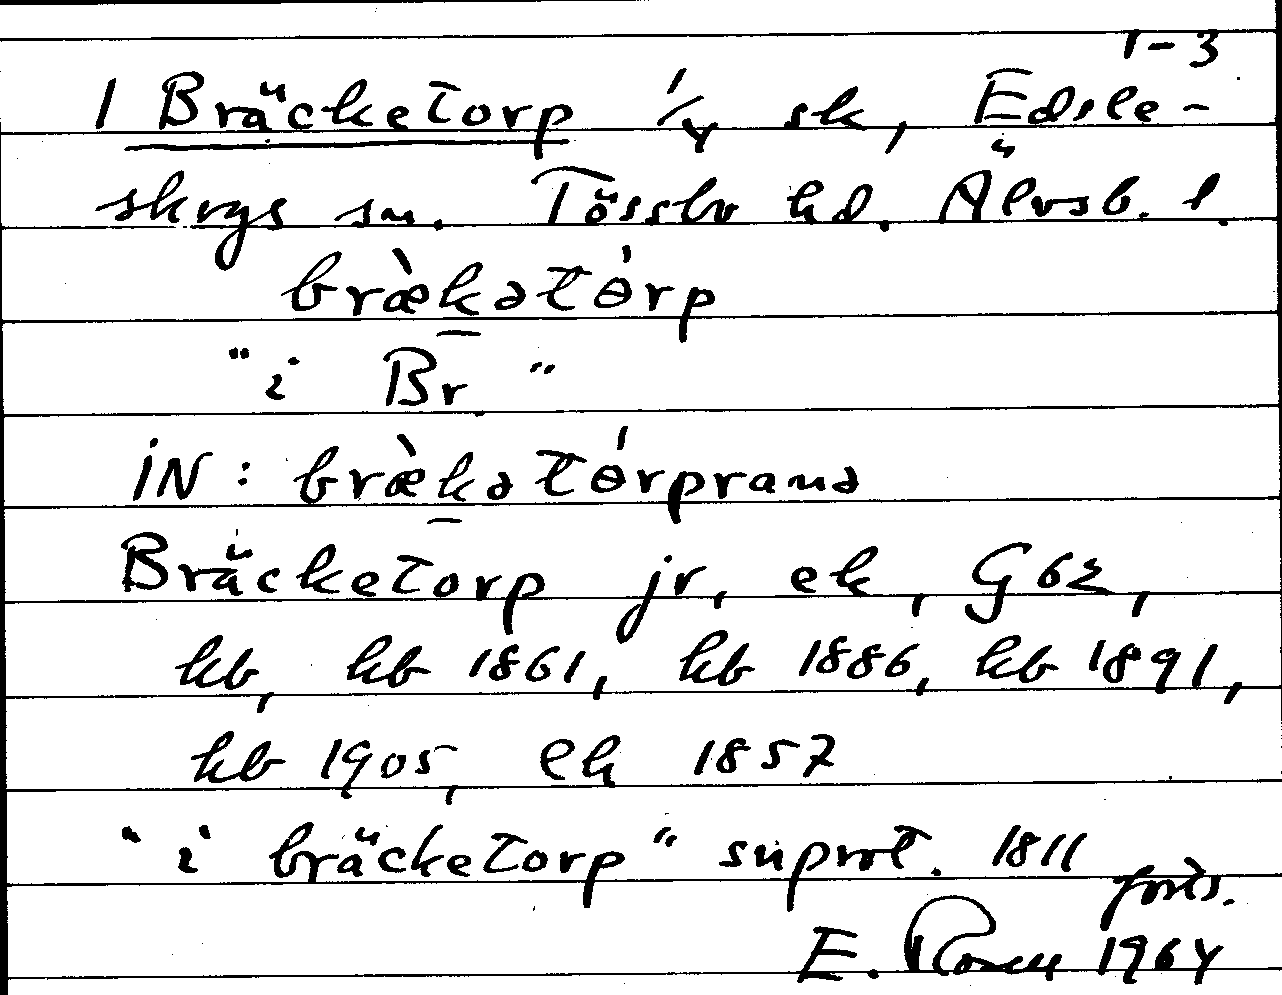 1-3
1 Bräcketorp 1/4 sk, Edsle-
skogs sn. Tössbo hd. Älvsb. l.
bræ̀kətɵ́rp
"i Br."
iN: bræ̀kətɵ́rprana
Bräcketorp jr, ek, G62,
hb, hb 1861, hb 1886, hb 1891,
hb 1905, ek 1857
"i bräcketorp" suprot. 1811
forts.
E. Rosen 1964